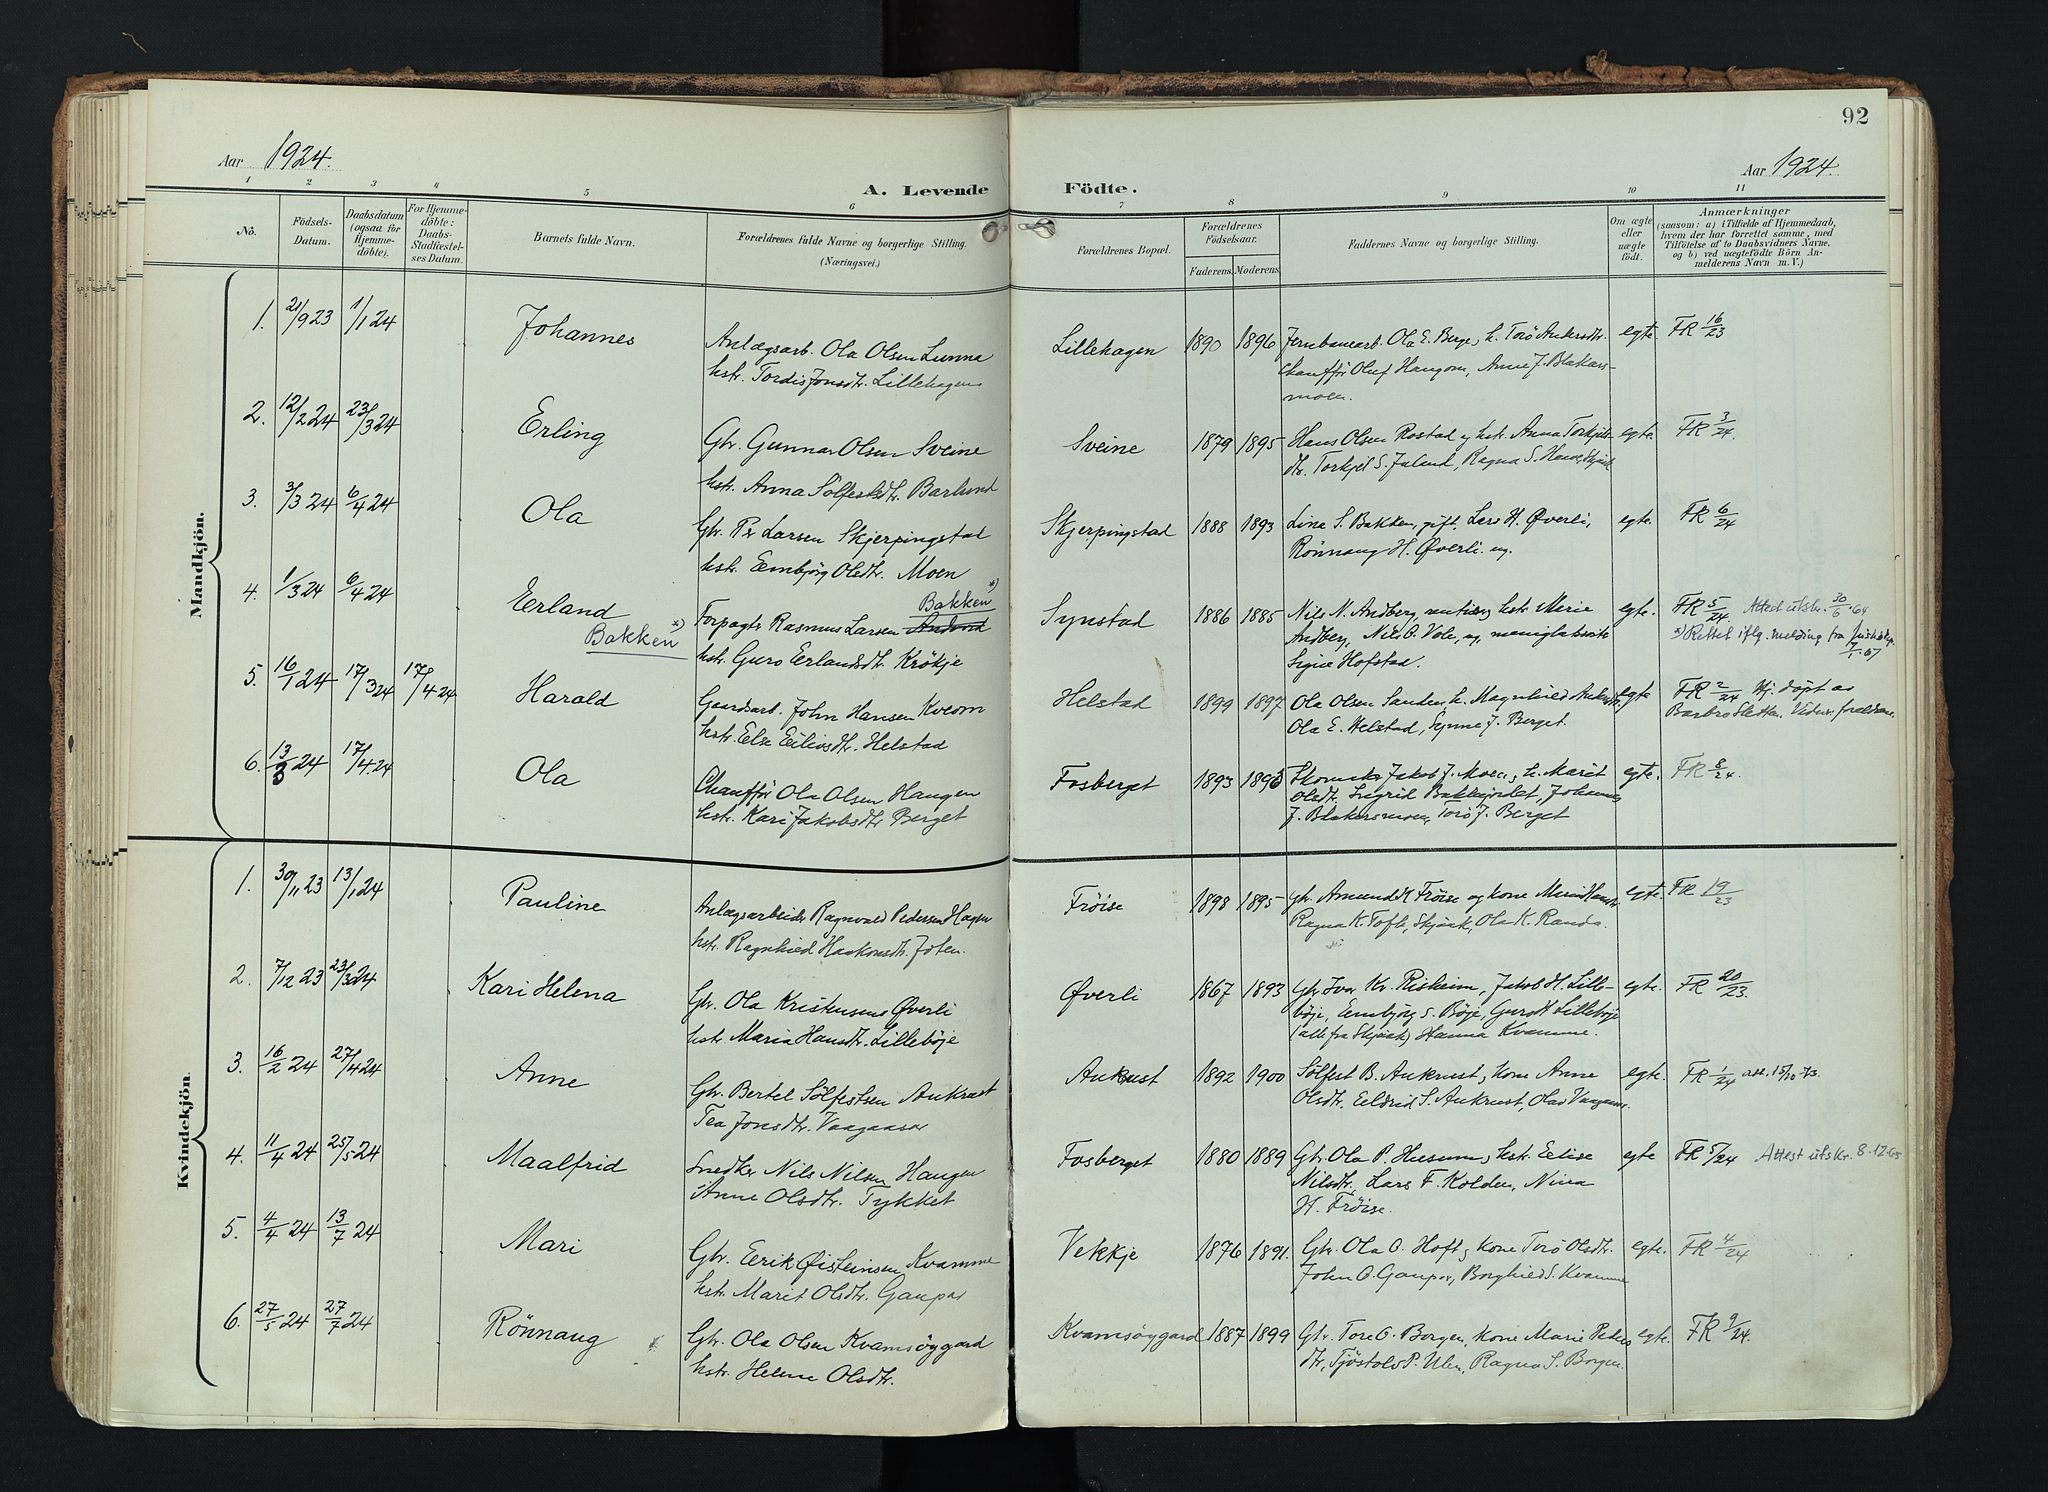 92
Aar 1924.
Aar 1924.
A. Levende Födte.
1 2 3 4 5 6 7 8 9 10 11
No.
Födsels-
Datum.
Daabsdatum
(ogsaa for
Hjemme-
döbte).
For Hjemme-
döbte:
Daabs-
Stadfæstel-
ses Datum.
Barnets fulde Navn.
Forældrenes fulde Navne og borgerlige Stilling.
(Næringsvei.)
Forældrenes Bopæl.
Forældrenes
Födselsaar.
Faderens. Moderens.
Faddernes Navne og borgerlige Stilling.
Om ægte
eller
uægte
födt.
Anmærkninger
(saasom: a) i Tilfælde af Hjemmedaab,
hvem der har forrettet samme, med
Tilföielse af to Daabsvidners Navne,
og b) ved uægtefödte Börn An-
melderens Navn m. V.)
Mandkjön.
1. 21/9 23 1/1 24 Johannes
Anlægsarb. Ola Olsen Lunna
hstr. Tordis Jonsdtr. Lillehagen
Lillehagen 1890 1896
Jernbanearb. Ola E. Berge, h. Torö Andersdtr.
chaufför Oluf Haugom, Anne J. Blakars-
moen.
egte. FR 16/23
2. 12/2 24 23/3 24 Erling
Gbr. Gunnar Olsen Sveine
hstr. Anna Sölfestdtr. Barlund
Sveine 1879 1895
Hans Olsen Rostad og hstr. Anna Torkjels-
dtr. Torkjel S. Jalund, Ragna S.
egte. FR 3/24.
3. 3/3 24 6/4 24 Ola
Gbr. Pr Larsen Skjerpingstad
hstr. Eembjörg Olsdtr. Moen
Skjerpingstad 1888 1893
Lina S. Bakken, gift, Lars H. Øverli,
Rönnaug H. Øverli. ug.
egte. FR 6/24
4. 1/3 24 6/4 24 Eerland
Bakken *)
Bakken *)
Forpagtr Rasmus Larsen
hstr. Guro Eerlandsdtr. Krökje
Synstad 1886 1885
Nils N. Andberg, hstr. Marie
Andberg, Nils O. Vole, ug,
Signe Hofstad.
egte. FR 5/24 Attest utskr. 30/6.64
*) Rettet iflg. melding fra
5. 16/1 24 17/3 24 17/4 24 Harald
Gaardsarb. John Hansen Kveom
hstr. Else Eilivsdtr. Helstad
Helstad 1899 1897
Ola Olsen Sanden, h. Magnhild
Ola E. Helstad, Synne J. Berget.
egte FR 2/24 Hj. döpt av
Barbro Sletten. Vidner foreldrene.
6. 13/3 24 17/4 24 Ola
Chaufför Ola Olsen Haugen
hstr. Kari Jakobsdtr Berget
Fosberget 1893 1896
Skomaker Jakob J. Moen, h. Marit
Olsdtr. Sigrid Bakkejordet, Johannes
J. Blakarsmoen, Torö J. Berget
egte. FR 8/24.
Kvindekjön.
1. 30/11 23 13/1 24 Pauline
Anlægsarbeider Ragnvald Pedersen Hagen
hstr. Ragnhild Haakonsdtr. Joten.
Fröise 1898 1895
Gbr. Amund K. Fröise og kone Mari Hansdtr.
Ragna K. Toft, Skjåk, Ola K. Randa.
egte. FR 19/23
2. 7/12 23 23/3 24 Kari Helena
Gbr. Ola Kristensens Øverli
hstr. Maria Hansdtr. Lilleböje
Øverli 1867 1893
Gbr. Ivar Kr. Riskeim, Jakob H. Lille-
böje, Eembjörg S. Böje, Guro H. Lilleböje
(alle fra Skjåk) Hanna Kvamme.
egte. FR 20/23.
3. 16/2 24 27/4 24 Anne
Gbr. Bertel Sölfestsen Aukrust
Tea Jonsdtr. Vaagaasar
Aukrust 1892 1900
Sölfest B. Aukrust, kone Anne
Olsdtr, Eeldrid S. Aukrust, Olav Vaagaasar.
egte. FR 1/24 att. 15/10-73.
4. 11/4 24 25/5 24 Maalfrid
Snedker Nils Nilsen Haugen
Anne Olsdtr. Tykket
Fosberget 1880 1889
Gbr. Ola P. Husum, hstr. Eelise
Nilsdtr, Lars F. Kolden, Nina
H. Fröise.
egte FR 5/24 Attest utskr. 8.12.65
5. 4/4 24 13/7 24 Mari
Gbr. Eerik Øisteinsen Kvamme
hstr. Marit Olsdtr. Gaupar
Vekkje 1876 1891.
Gbr. Ola O. Hoft, kone Torö Olsdtr.
John O. Gaupar, Borghild S. Kvamme
egte. FR 4/24
6. 27/5 24 27/7 24 Rönnaug
Gbr. Ola Olsen Kvamsöygard
hstr. Helene Olsdtr.
Kvamsöygard 1887 1899
Gbr. Tore O. Borgen, kone Marie Peders
dtr, Tjöstolv P. Ulen, Ragna S. Borgen.
egte. FR 9/24.